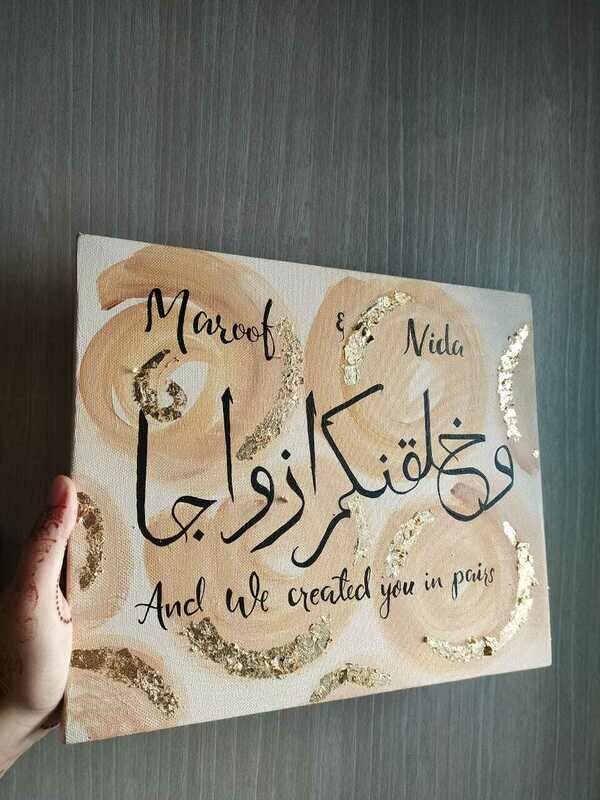 Maroof & Nida
وخلقنكم ازواجا
And We created you in pairs